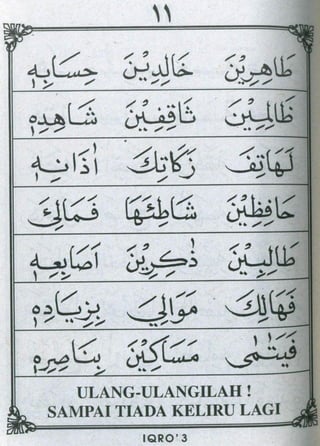 ١١
طَاهِرِيْنَ خَالِدِيْنَ حِسَابِهٖ
ظَالِمِيْنَ ثَاقِفِيْنَ شَاهِدِهٖ
لَهَاتِفَ زَكَاتِكَ اٰذَانِهٖ
حَافِظِيْنَ شَاطِئَهَا فَمَالِئَ
طَالِبِيْنَ ذٰكِرِيْنَ اَصَابِعِهٖ
فَهَالِكَ مَوَالِيَ بِزِيَادِهٖ
فَيَتٰمٰى مَسَاكِيْنَ بِنَاصِرِهٖ
ULANG-ULANGILAH !
SAMPAI TIADA KELIRU LAGI
IQRO'3